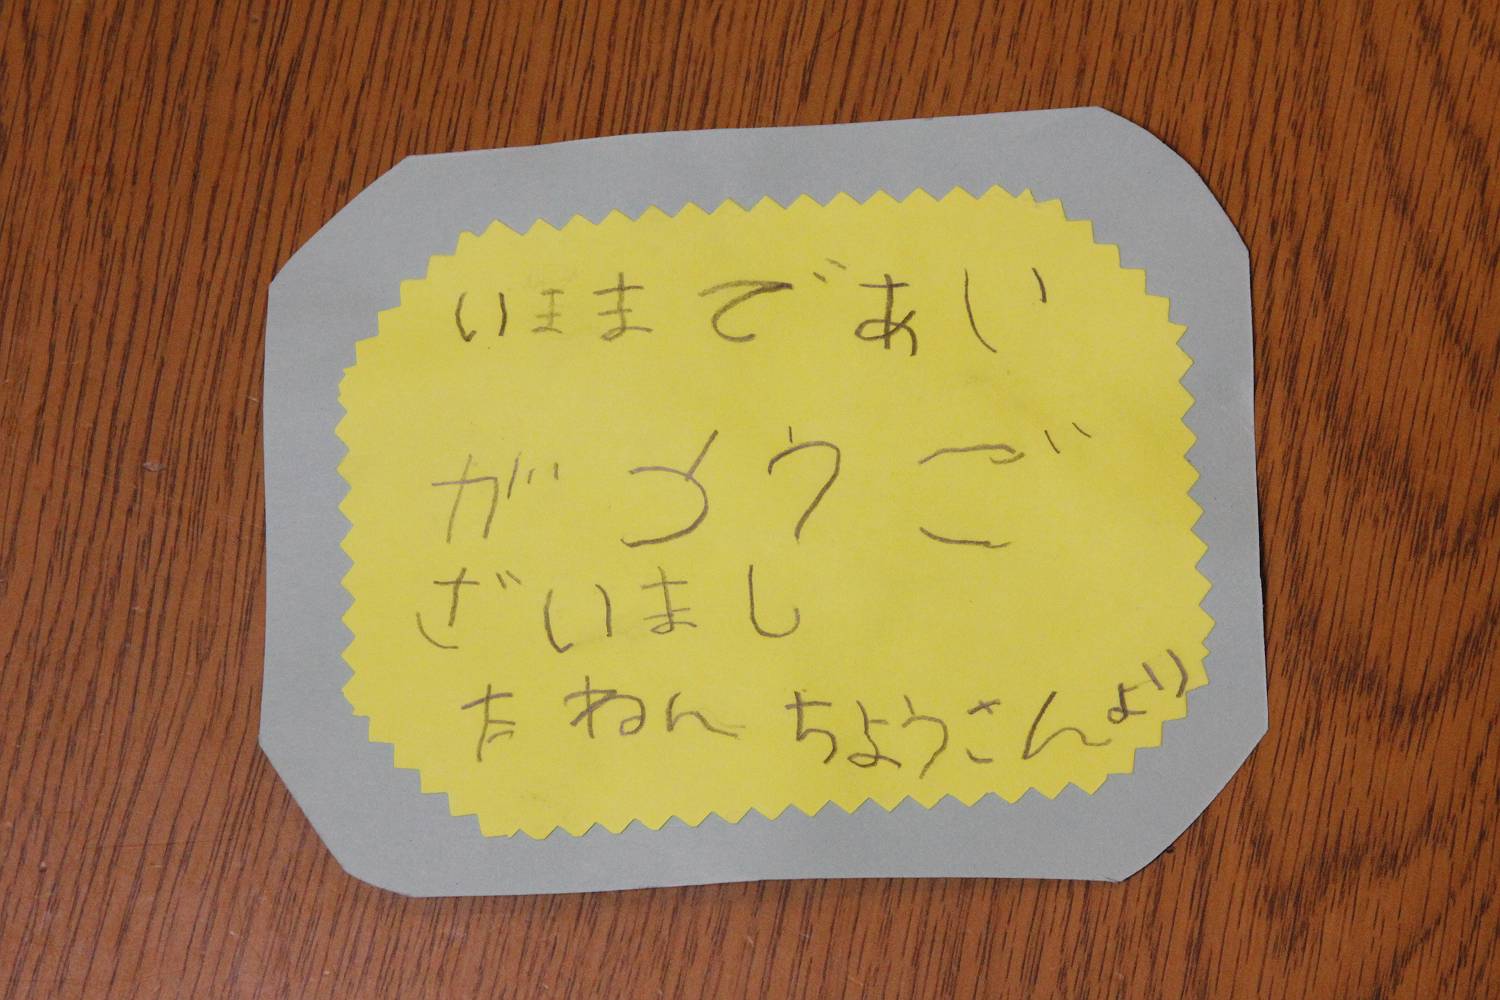 いままであり
がとうご
ざいまし
た ねん ちようさんより